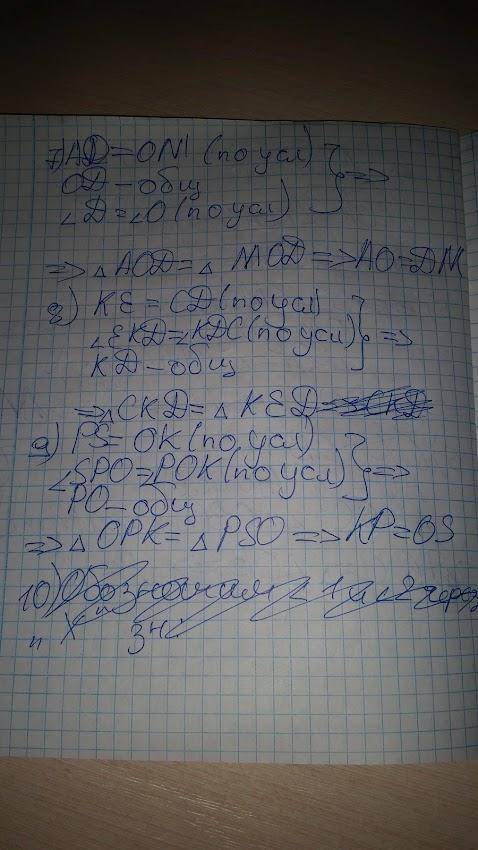 7) AD = OM (по усл)
OD - общ
∠D = ∠O (по усл) } =>
=> △ AOD = △ MOD => AO = DM
8) KE = CD (по усл)
∠EKD = ∠KDC (по усл) } =>
KD - общ
=> △ CKD = △ KED
9) PS = OK (по усл)
∠SPO = POK (по усл) } =>
PO - общ
=> △ OPK = △ PSO => KP = OS
10) Обозначим ∠ 1 и ∠ 2 через
"X"